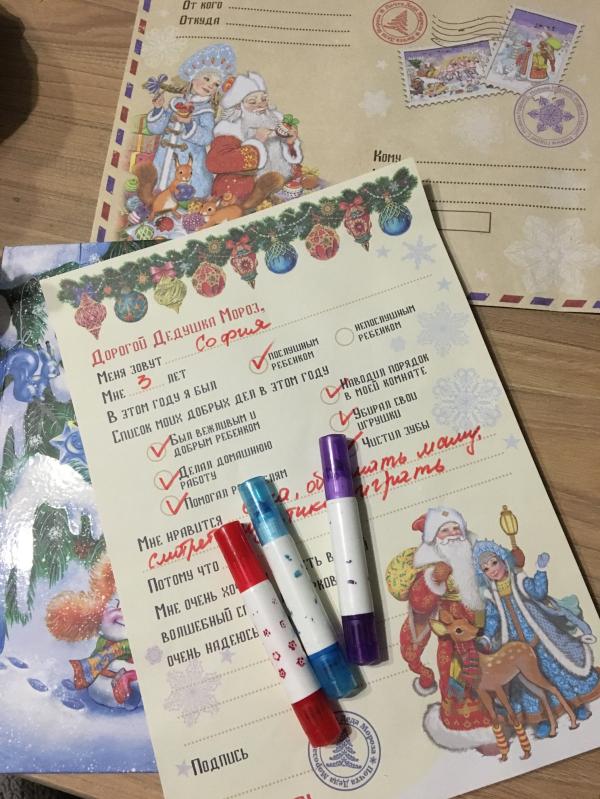 От кого
Откуда
Почта Деда Мороза
Кому
Дорогой Дедушка Мороз,
Меня зовут София
Мне 3 лет
В этом году я был
послушным ребенком
непослушным ребенком
Список моих добрых дел в этом году
Был вежливым и добрым ребенком
Наводил порядок в моей комнате
Делал домашнюю работу
Убирал свои игрушки
Помогал
Чистил зубы
Мне нравится маму,
играть
Потому что
Мне очень
волшебный
очень надеюсь
Подпись
Почта Деда Мороза